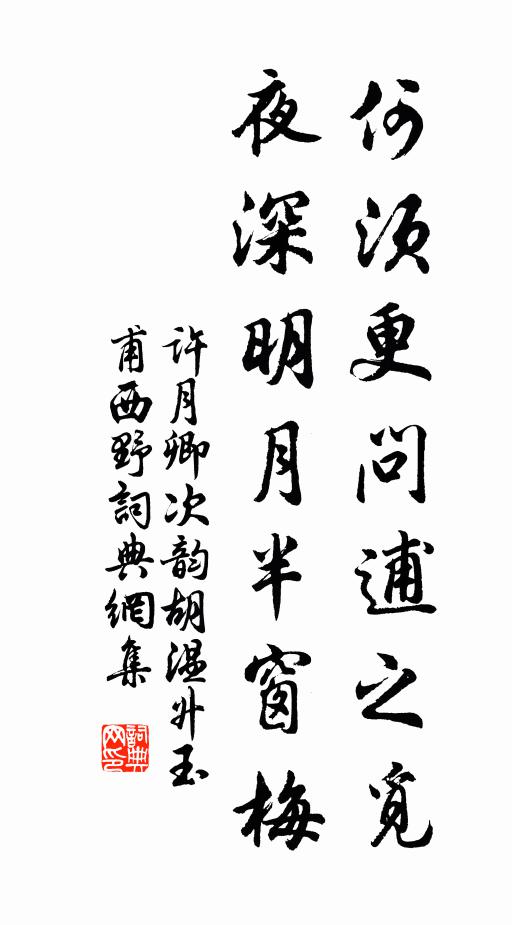 何須更問逋之覓
夜深明月半窗梅
許月卿次韵胡溫升玉
甫西野詞典網集
詞典网印